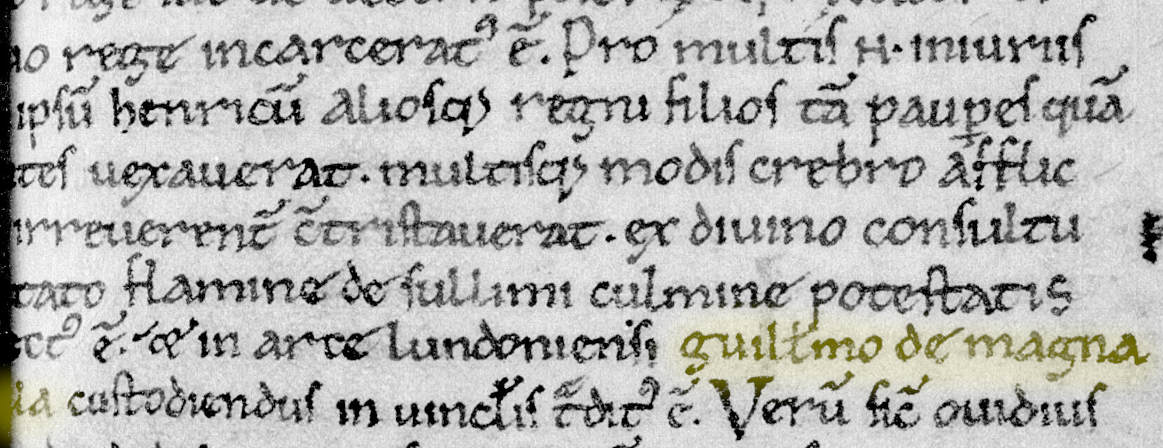 rege incarcerat᷒ ē. Pro multis n. iniuriis
ipsū henricū aliosq; regni filios tā paup̱es quā
tes uexauerat. multisq; modis crebro afflic
irreuerent̄ c̄tristauerat. ex diuino consultu
tato flamine de sullimi culmine potestatis
ē. & in arce lundoniensi guilłmo de magna
la custodiendus in uincłis t̄dit᷒ ē. Verū sic̄ ouidius